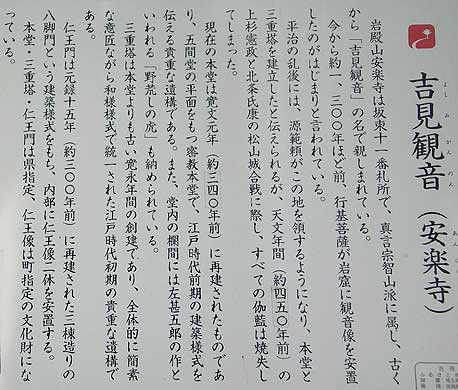 吉見観音（安楽寺）
よしみかんのん
あんらくじ
岩殿山安楽寺は坂東十一番札所で、真言宗智山派に属し、古く
から「吉見観音」の名で親しまれている。
今から約一、二〇〇年ほど前、行基菩薩が岩窟に観音像を安置
したのがはじまりと言われている。
平治の乱後には、源範頼がこの地を領するようになり、本堂と
三重塔を建立したと伝えられるが、天文年間（約四五〇年前）の
上杉憲政と北条氏康の松山城合戦に際し、すべての伽藍は焼失し
てしまった。
現在の本堂は寛文元年（約三四〇年前）に再建されたものであ
り、五間堂の平面をもつ密教本堂で、江戸時代前期の建築様式を
伝える貴重な遺構である。また、堂内の欄間には左甚五郎の作と
いわれる「野荒しの虎」も納められている。
三重塔は本堂よりも古い寛永年間の創建であり、全体的に簡素
な意匠ながら和様様式で統一された江戸時代初期の貴重な遺構で
ある。
仁王門は元禄十五年（約三〇〇年前）に再建された三棟造りの
八脚門という建築様式をもち、内部に仁王像二体を安置する。
本堂・三重塔・仁王門は県指定、仁王像は町指定の文化財にな
っている。